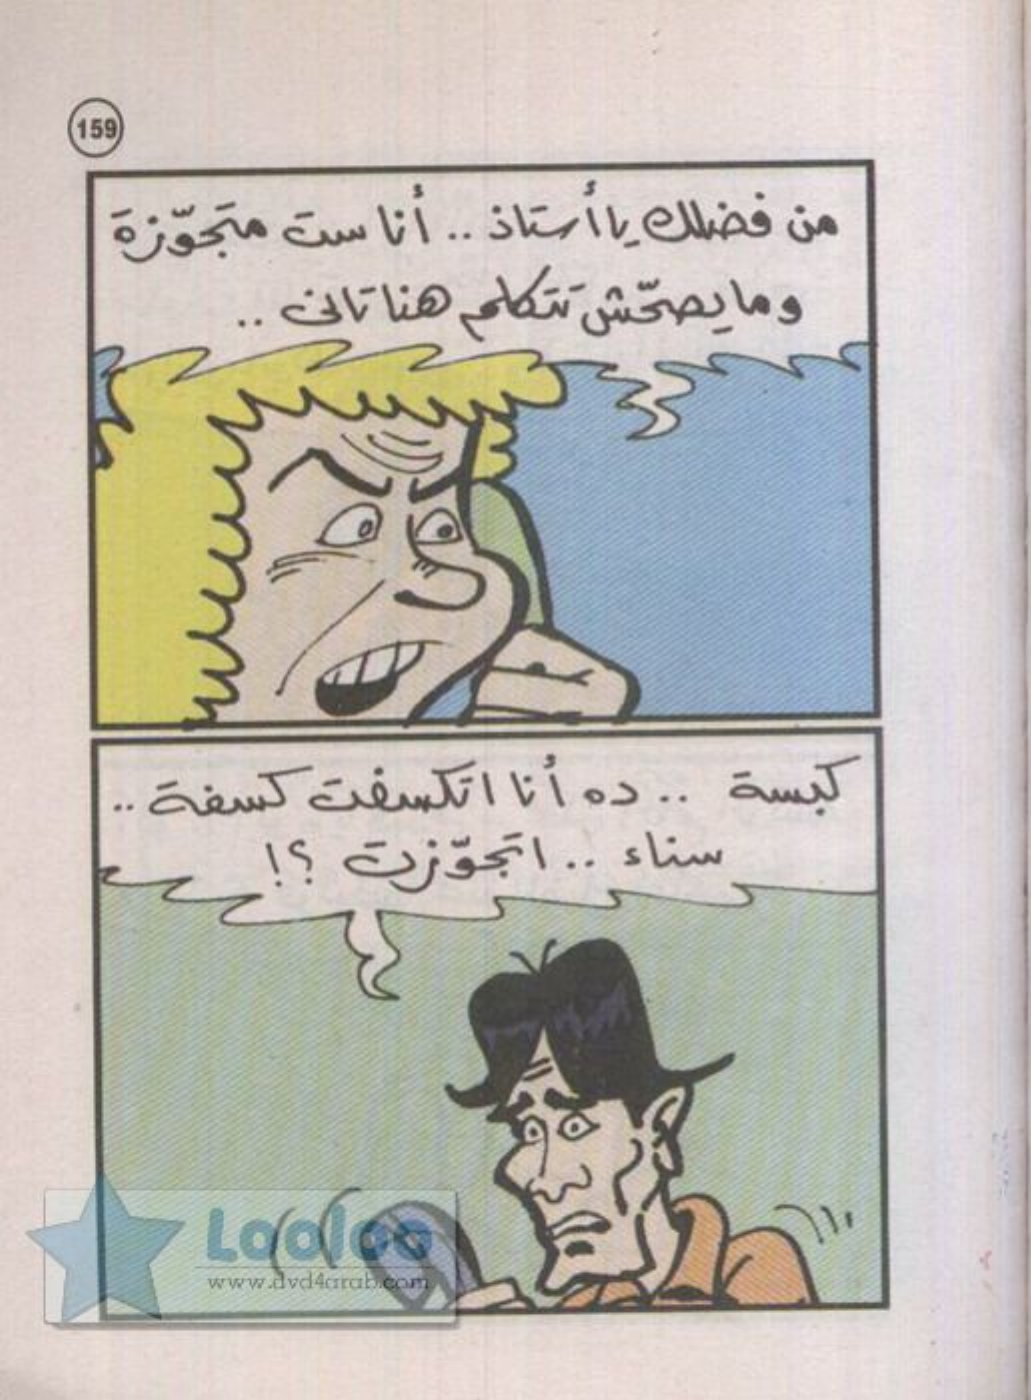 159
من فضلك يا أستاذ .. أنا ست متجوّزة
وما يصحّش تتكلم هنا تانى ..
كبسة .. ده أنا اتكسفت كسفة ..
سناء .. اتجوّزت ؟!
Looloo
www.dvd4arab.com